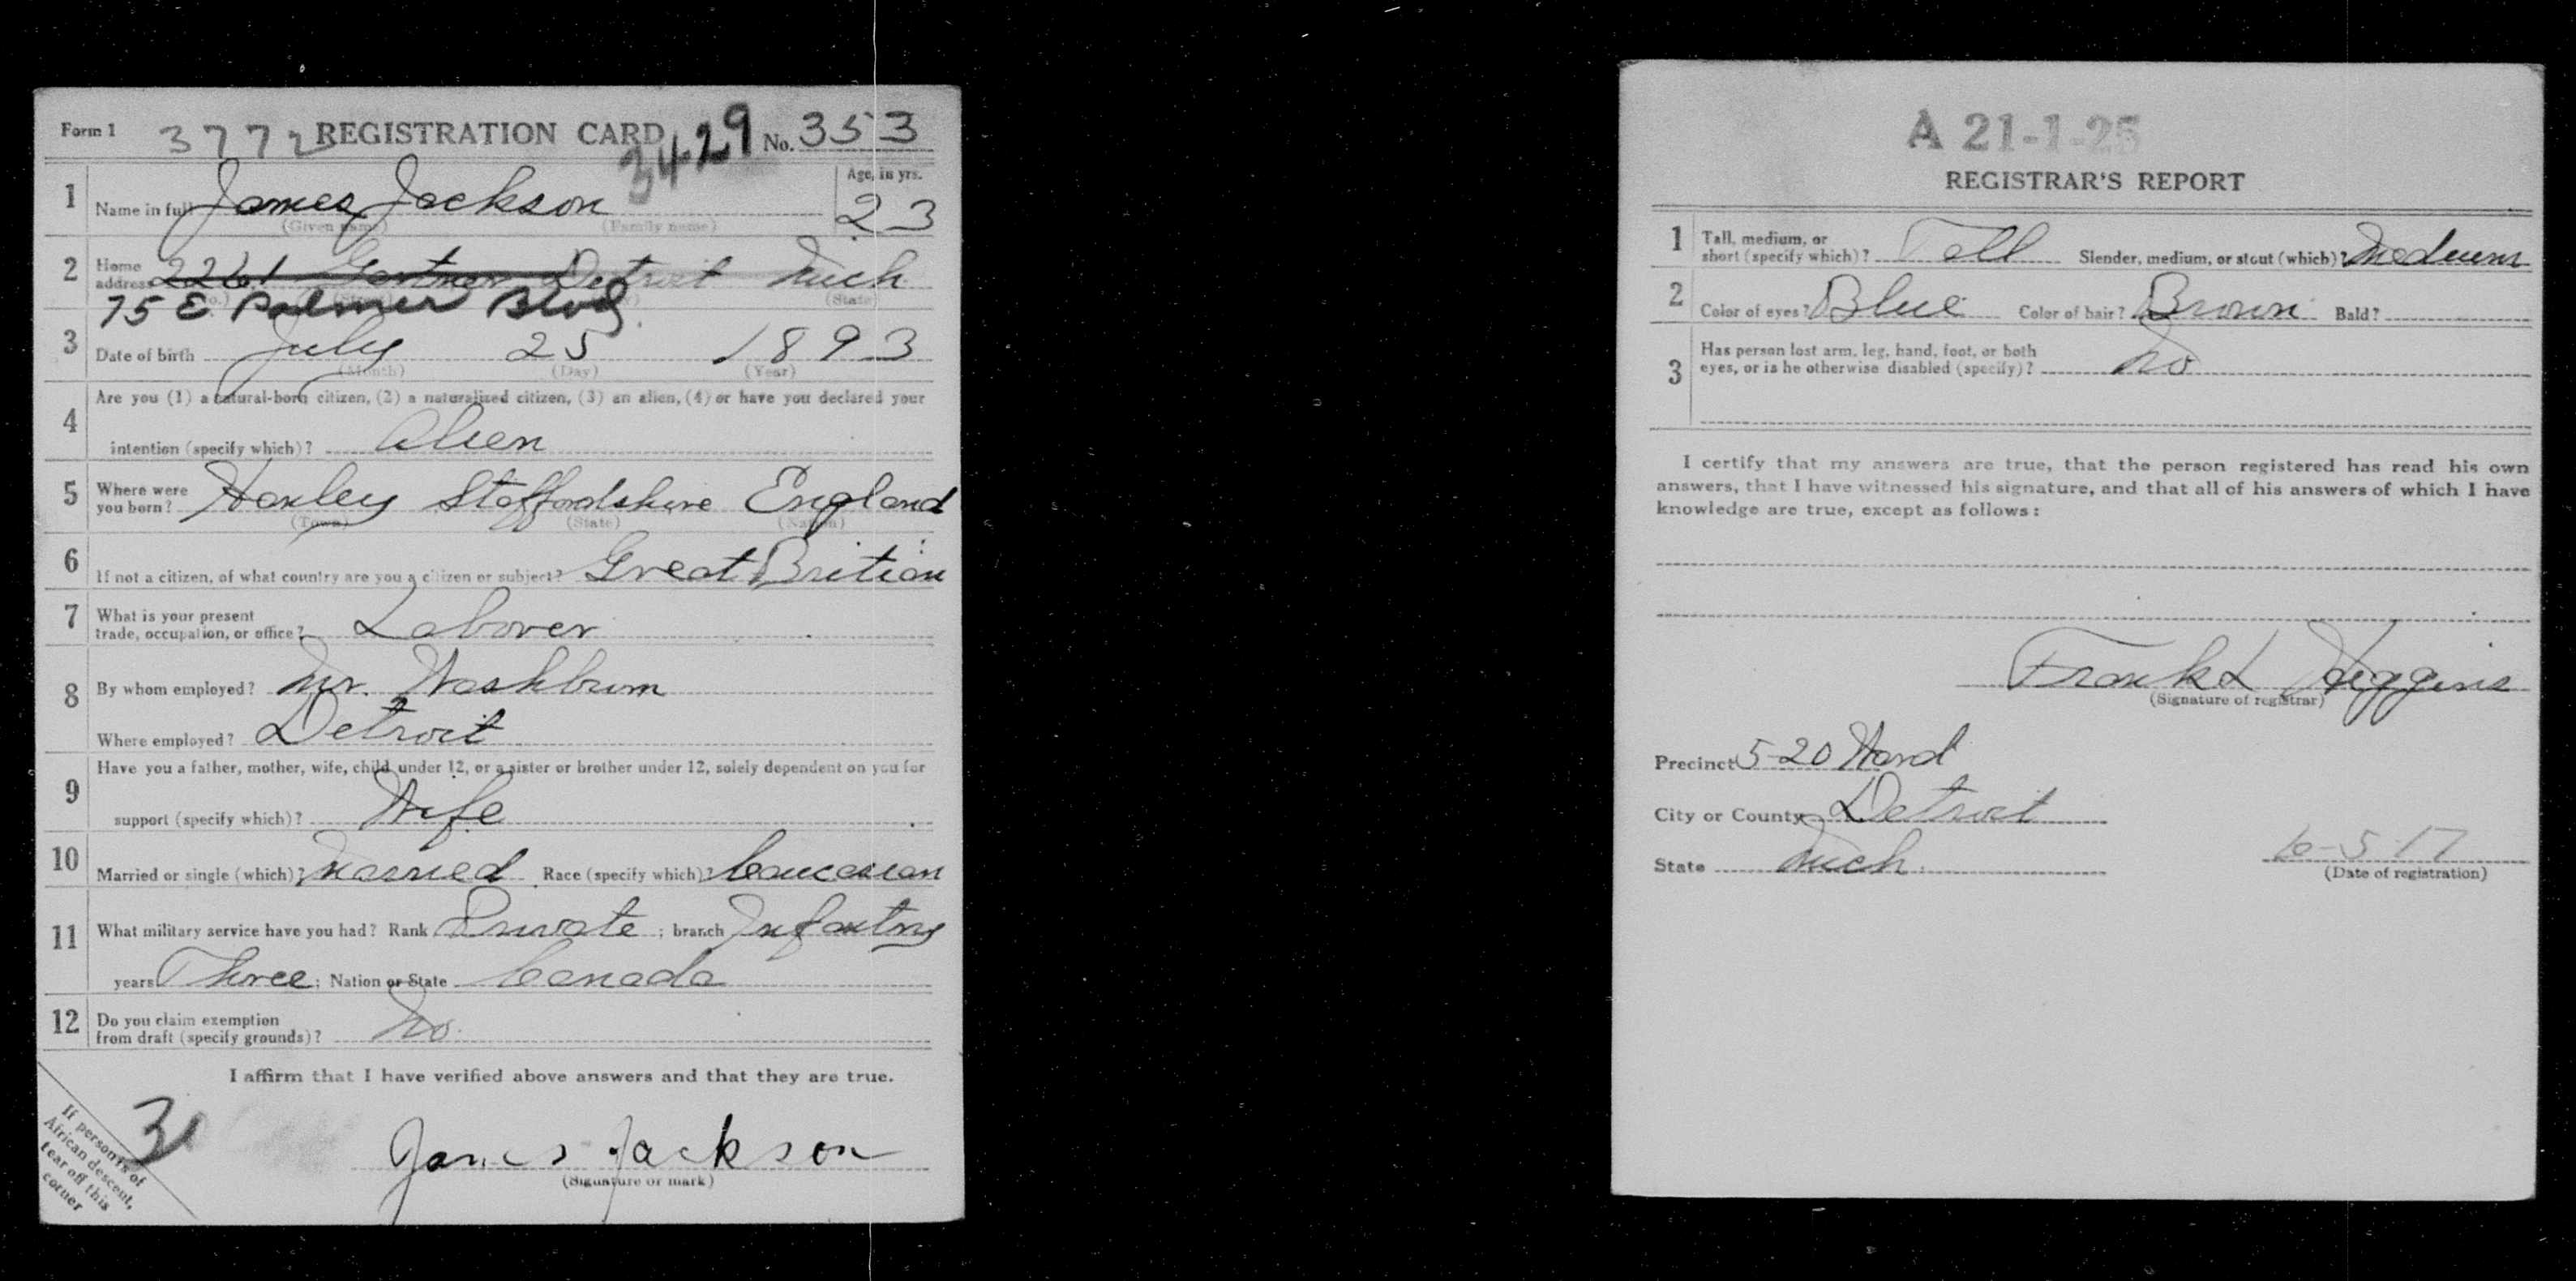 Form 1 3772 REGISTRATION CARD 3429 No. 353
1 Name in full James Jackson Age, in yrs. 23
(Given name) (Family name)
2 Home address 2261 Gartner Detroit Mich
(No.) (Street) (City) (State)
75 E Palmer Blvd
3 Date of birth July 25 1893
(Month) (Day) (Year)
4 Are you (1) a natural-born citizen, (2) a naturalized citizen, (3) an alien, (4) or have you declared your
intention (specify which)? Alien
5 Where were you born? Hanley Staffordshire England
(Town) (State) (Nation)
6 If not a citizen, of what country are you a citizen or subject? Great Britian
7 What is your present trade, occupation, or office? Laborer
8 By whom employed? Mr. Washburn
Where employed? Detroit
9 Have you a father, mother, wife, child under 12, or a sister or brother under 12, solely dependent on you for
support (specify which)? Wife
10 Married or single (which)? Married Race (specify which)? Caucasian
11 What military service have you had? Rank Private ; branch Infantry
years Three ; Nation or State Canada
12 Do you claim exemption from draft (specify grounds)? No
I affirm that I have verified above answers and that they are true.
James Jackson
(Signature or mark)
If person is of
African descent,
tear off this
corner
A 21-1-25
REGISTRAR'S REPORT
1 Tall, medium, or short (specify which)? Tall Slender, medium, or stout (which)? Medium
2 Color of eyes? Blue Color of hair? Brown Bald?
3 Has person lost arm, leg, hand, foot, or both
eyes, or is he otherwise disabled (specify)? No
I certify that my answers are true, that the person registered has read his own
answers, that I have witnessed his signature, and that all of his answers of which I have
knowledge are true, except as follows:
Frank L Higgins
(Signature of registrar)
Precinct 5-20 Ward
City or County Detroit
State Mich. 6-5-17
(Date of registration)